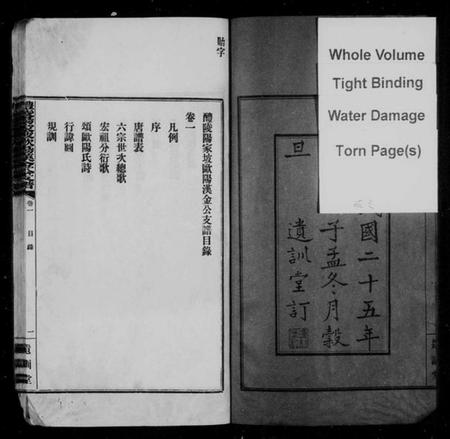 Whole Volume
Tight Binding
Water Damage
Torn Page(s)
國二十五年
子孟冬月穀
旦
遺訓堂訂
貽字
醴陵陽家坡歐陽漢金公支譜目錄
卷一
凡例
序
唐譜表
六宗世次總歌
宏祖分衍歌
頌歐陽氏詩
行諱圖
規訓
卷一
目錄
一
遺訓堂